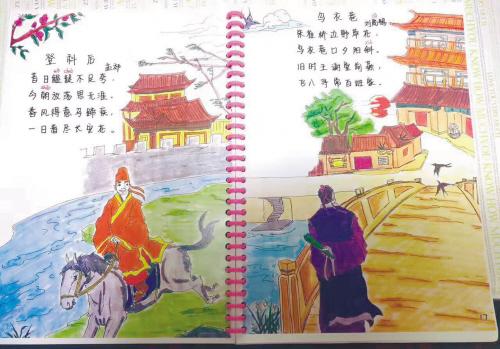 登科后
孟郊
昔日龌龊不足夸，
今朝放荡思无涯。
春风得意马蹄疾，
一日看尽长安花。
乌衣巷
刘禹锡
朱雀桥边野草花，
乌衣巷口夕阳斜。
旧时王谢堂前燕，
飞入寻常百姓家。